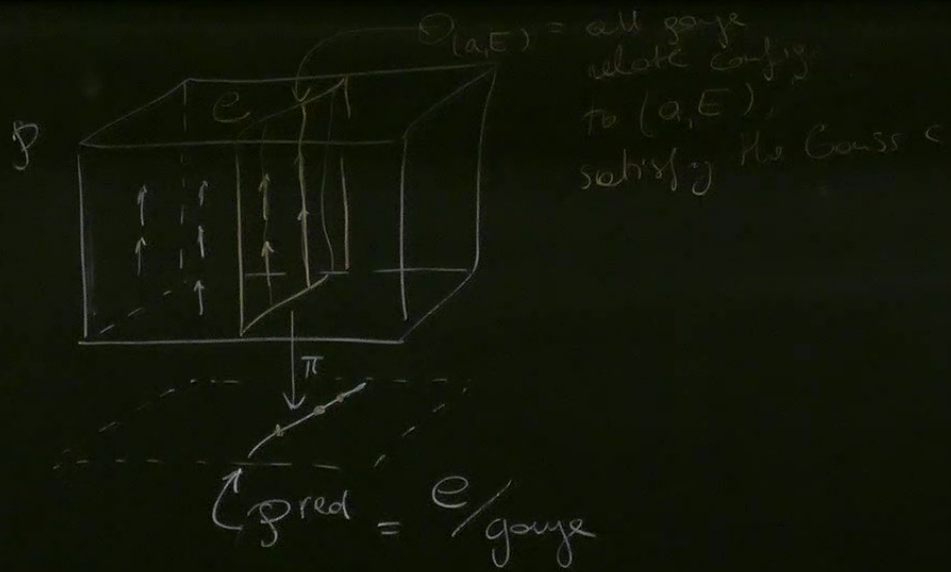 O(a,E) = all gauge
relate config
to (a,E),
satisfy the Gauss C
e
P
π
Pred = e/gauge